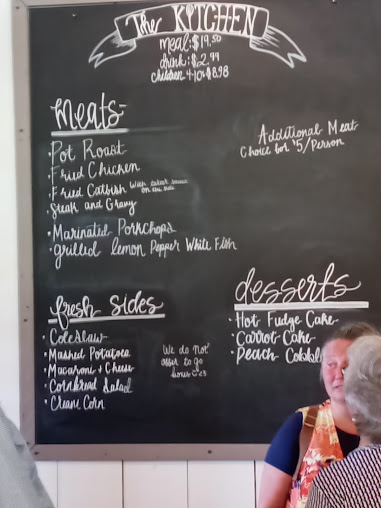 The KITCHEN
meal: $19.50
drink: $2.99
children 4-10: $8.98
Meats-
Additional Meat
Choice for $5/Person
• Pot Roast
• Fried Chicken
• Fried Catfish With tartar sauce
on the side
• Steak and Gravy
• Marinated Porkchops
• grilled lemon Pepper White Fish
desserts
• Hot Fudge Cake
• Carrot Cake
• Peach
fresh sides
• Coleslaw
• Mashed Potatoes
• Macaroni + Cheese
• Cornbread Salad
• Cream Corn
We do not
offer to go
boxes